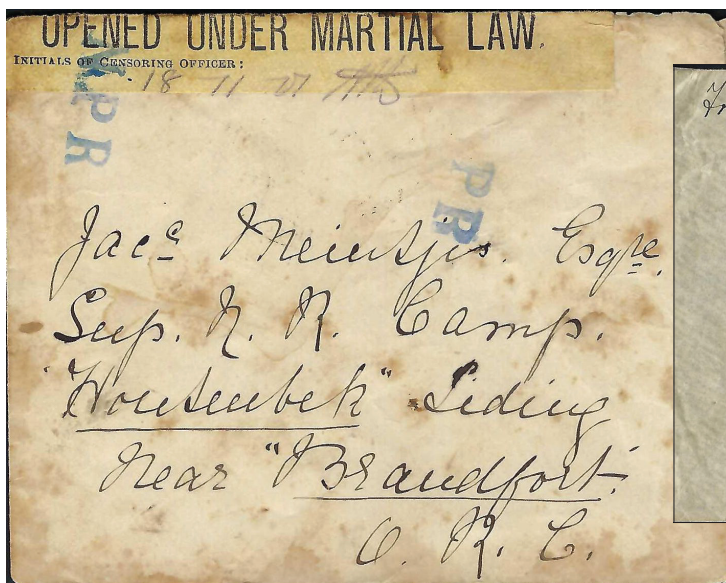 OPENED UNDER MARTIAL LAW.
INITIALS OF CENSORING OFFICER:
18 11 01
PR
PR
Jacs Meintjis. Esqre.
Sup. N. R. Camp.
"Houtenbek" Siding
Near "Brandfort."
O. R. C.